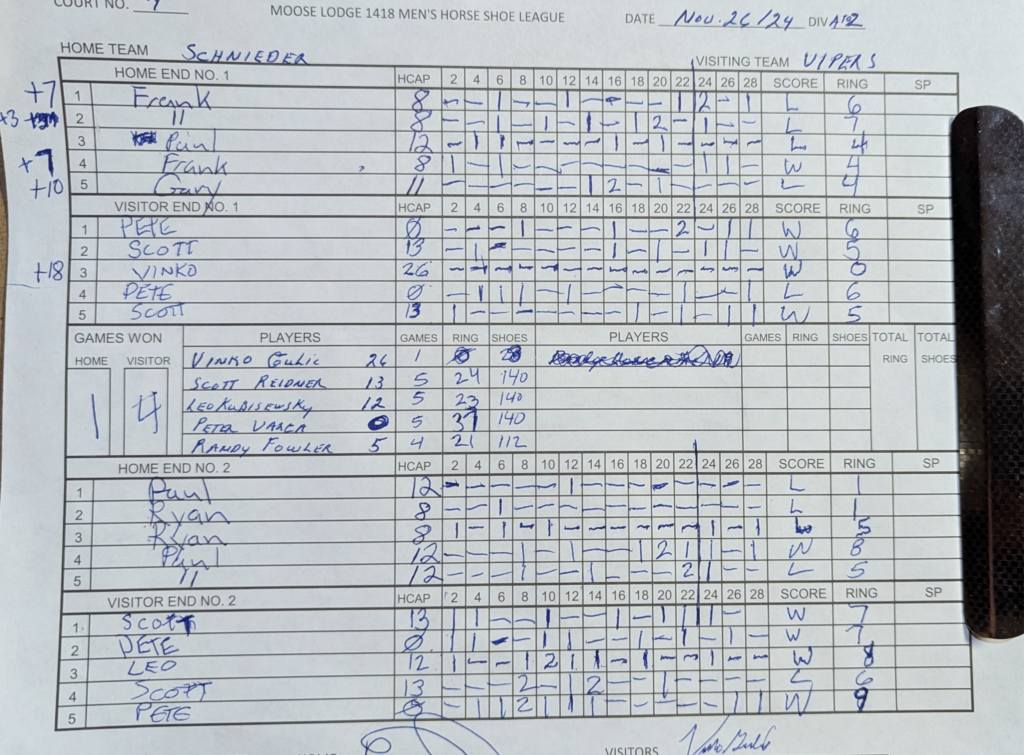 COURT NO. 9
MOOSE LODGE 1418 MEN'S HORSE SHOE LEAGUE DATE Nov. 26/24 DIV A TO Z
HOME TEAM SCHNIEDER VISITING TEAM VIPERS
HOME END NO. 1 HCAP 2 4 6 8 10 12 14 16 18 20 22 24 26 28 SCORE RING SP
+7 1 Frank 8 - - 1 - - 1 - - - - 1 2 - 1 L 6
+3 2 " 8 - - 1 - 1 - 1 - 1 2 - 1 - - L 7
3 Paul 12 - 1 1 - - - - 1 - 1 - - - - L 4
+7 4 Frank 8 1 - 1 - - - - - - - - 1 1 - W 4
+10 5 Gary 11 - - - - - - 1 2 - 1 - - - - L 4
VISITOR END NO. 1 HCAP 2 4 6 8 10 12 14 16 18 20 22 24 26 28 SCORE RING SP
1 PETE 0 - - - 1 - - - 1 - - 2 - 1 1 W 6
2 SCOTT 13 - 1 - - - - - 1 - 1 - 1 1 - W 5
+18 3 VINKO 26 - - - - - - - - - - - - - - W 0
4 PETE 0 - 1 1 1 - 1 - - - - 1 - - 1 L 6
5 Scott 13 1 - - - - - - - 1 - 1 - 1 1 W 5
GAMES WON PLAYERS GAMES RING SHOES PLAYERS GAMES RING SHOES TOTAL RING TOTAL SHOES
HOME VISITOR
1 4
VINKO Gulic 26 1 0 28
SCOTT REIDNER 13 5 24 140
LEO KUBISEWSKY 12 5 23 140
PETER VARGA 0 5 37 140
RANDY FOWLER 5 4 21 112
HOME END NO. 2 HCAP 2 4 6 8 10 12 14 16 18 20 22 24 26 28 SCORE RING SP
1 Paul 12 - - - - - 1 - - - - - - - - L 1
2 Ryan 8 - - 1 - - - - - - - - - - - L 1
3 Ryan 8 1 - 1 - 1 - - - - - - 1 - 1 L 5
4 Paul 12 - - - 1 - 1 - - 1 2 1 1 - 1 W 8
5 " 12 - - - 1 - - 1 - - - 2 1 - - L 5
VISITOR END NO. 2 HCAP 2 4 6 8 10 12 14 16 18 20 22 24 26 28 SCORE RING SP
1 SCOTT 13 1 1 - - 1 - - 1 - 1 1 1 - W 7
2 PETE 0 1 1 - - 1 1 - - 1 - 1 - 1 - W 7
3 LEO 12 1 - - 1 2 1 1 - 1 - - 1 - - W 8
4 SCOTT 13 - - - 2 - 1 2 - - 1 - - - - L 6
5 PETE 0 W 9
VISITORS